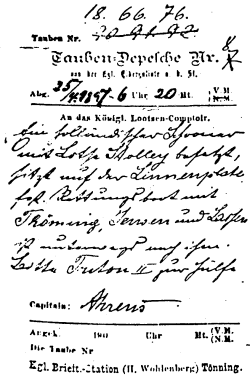 18. 66. 76.
Tauben Nr.
Tauben-Depesche Nr. 8
von der Kgl. Eidergaliote a. d. St.
Abg. 25/4 1897 6 Uhr 20 Mt. V.M. N.M.
An das Königl. Lootsen-Comptoir.
Ein holländischer Schooner
mit Lotse Stolley besetzt,
sitzt auf der Linnenplate
fest. Rettungsboot mit
Thömming, Jensen und Lassen
ist unterwegs nach ihm.
Lotse Triton II zur Hülfe
Capitain: Ahrens
Angek. 190 Uhr Mt. V.M. N.M.
Die Taube Nr
Kgl. Brieft.-Station (H. Wohlenberg) Tönning.